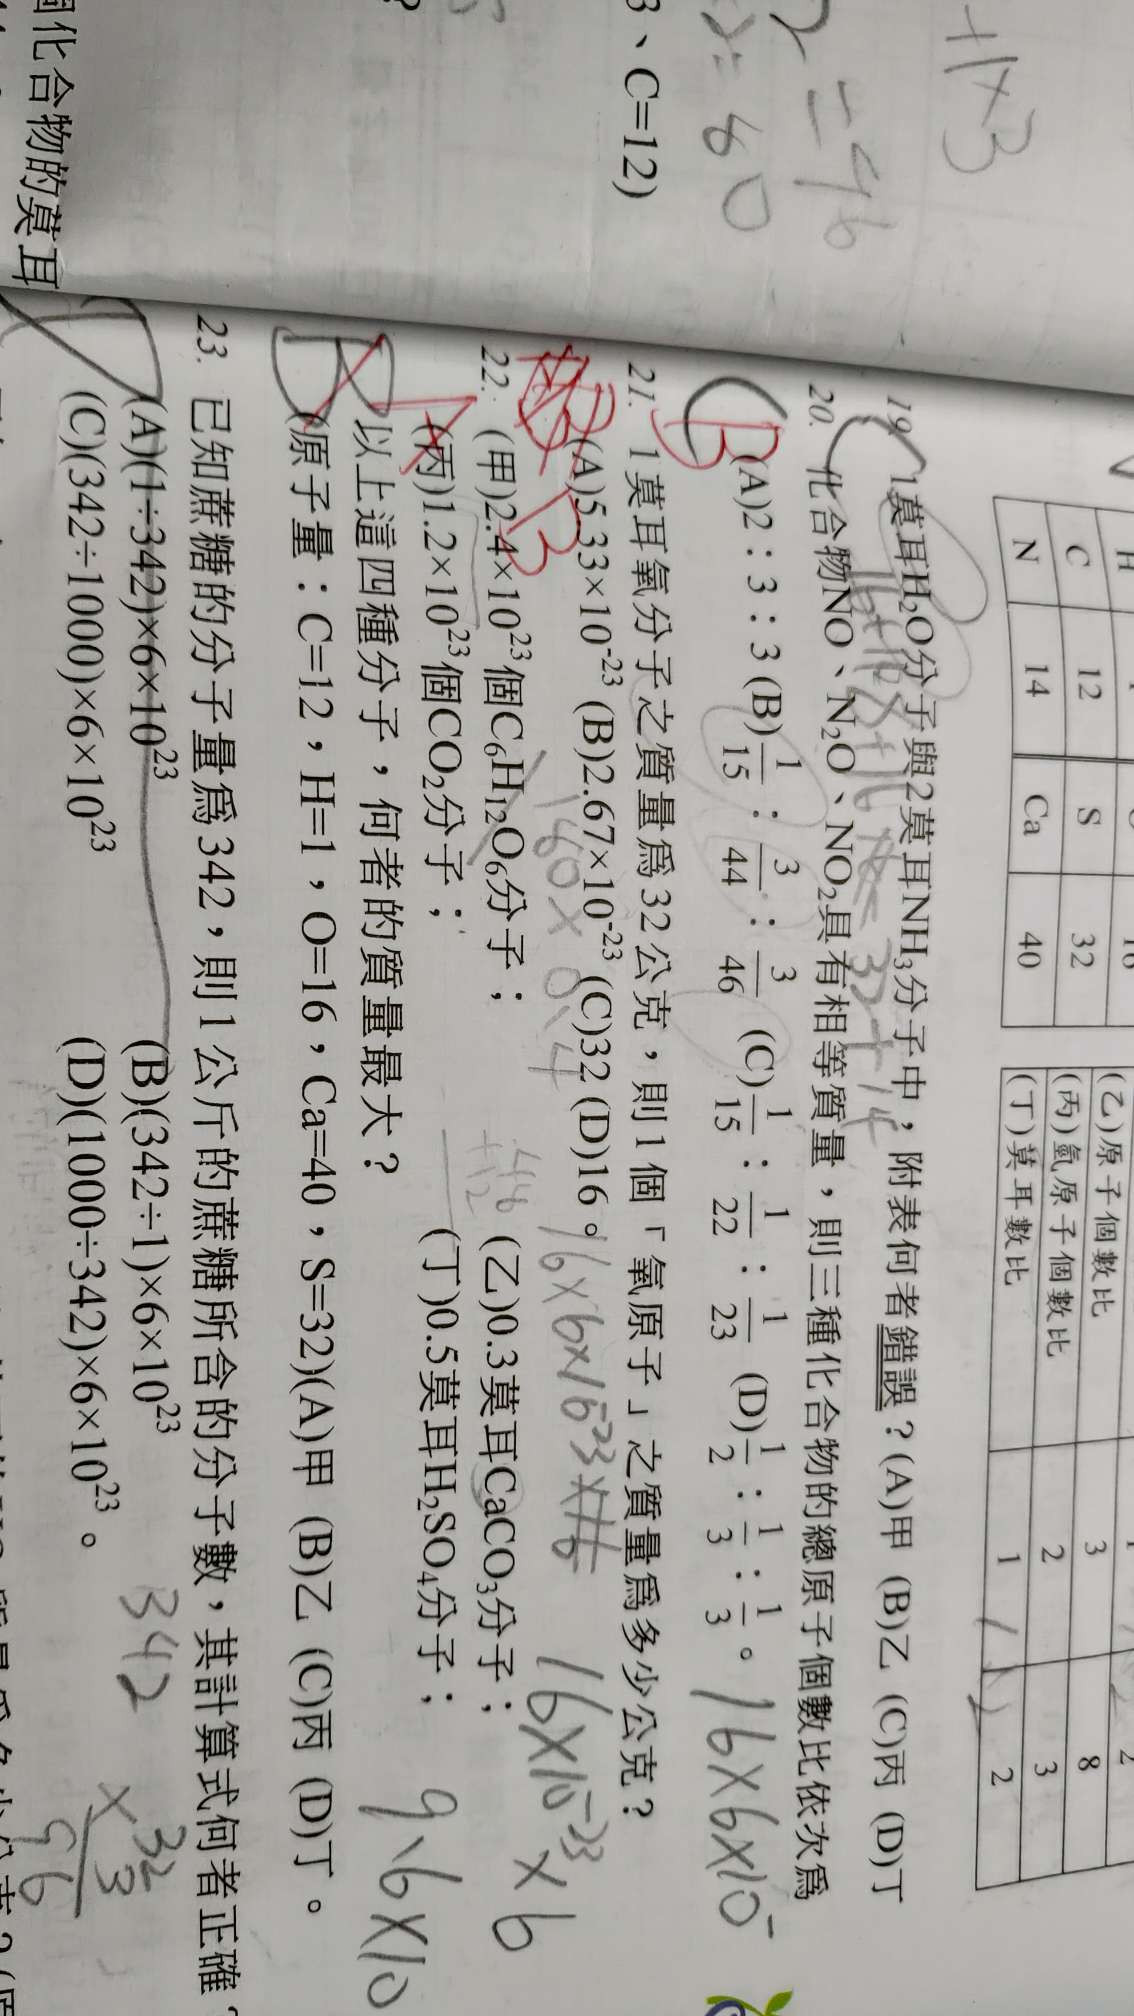 3、C=12)
固化合物的莫耳
+1×3
=46
C
12
S
32
N
14
Ca
40
(乙)原子個數比
3
8
(丙)氫原子個數比
2
3
(丁)莫耳數比
1
2
19. 1莫耳H₂O分子與2莫耳NH₃分子中,附表何者錯誤?(A)甲 (B)乙 (C)丙 (D)丁
20. 化合物NO、N₂O、NO₂具有相等質量,則三種化合物的總原子個數比依次爲
(A)2:3:3 (B)1/15:3/44:3/46 (C)1/15:1/22:1/23 (D)1/2:1/3:1/3。
B
21. 1莫耳氧分子之質量爲32公克,則1個「氧原子」之質量爲多少公克?
(A)5.33×10⁻²³ (B)2.67×10⁻²³ (C)32 (D)16。
B
22. (甲)2.4×10²³個C₆H₁₂O₆分子; (乙)0.3莫耳CaCO₃分子;
(丙)1.2×10²³個CO₂分子; (丁)0.5莫耳H₂SO₄分子;
以上這四種分子,何者的質量最大?
(原子量:C=12,H=1,O=16,Ca=40,S=32)(A)甲 (B)乙 (C)丙 (D)丁。
A
23. 已知蔗糖的分子量爲342,則1公斤的蔗糖所含的分子數,其計算式何者正確?
(A)(1÷342)×6×10²³ (B)(342÷1)×6×10²³
(C)(342÷1000)×6×10²³ (D)(1000÷342)×6×10²³。
16×6×10⁻
×6
9.6×10
342
32
×3
96